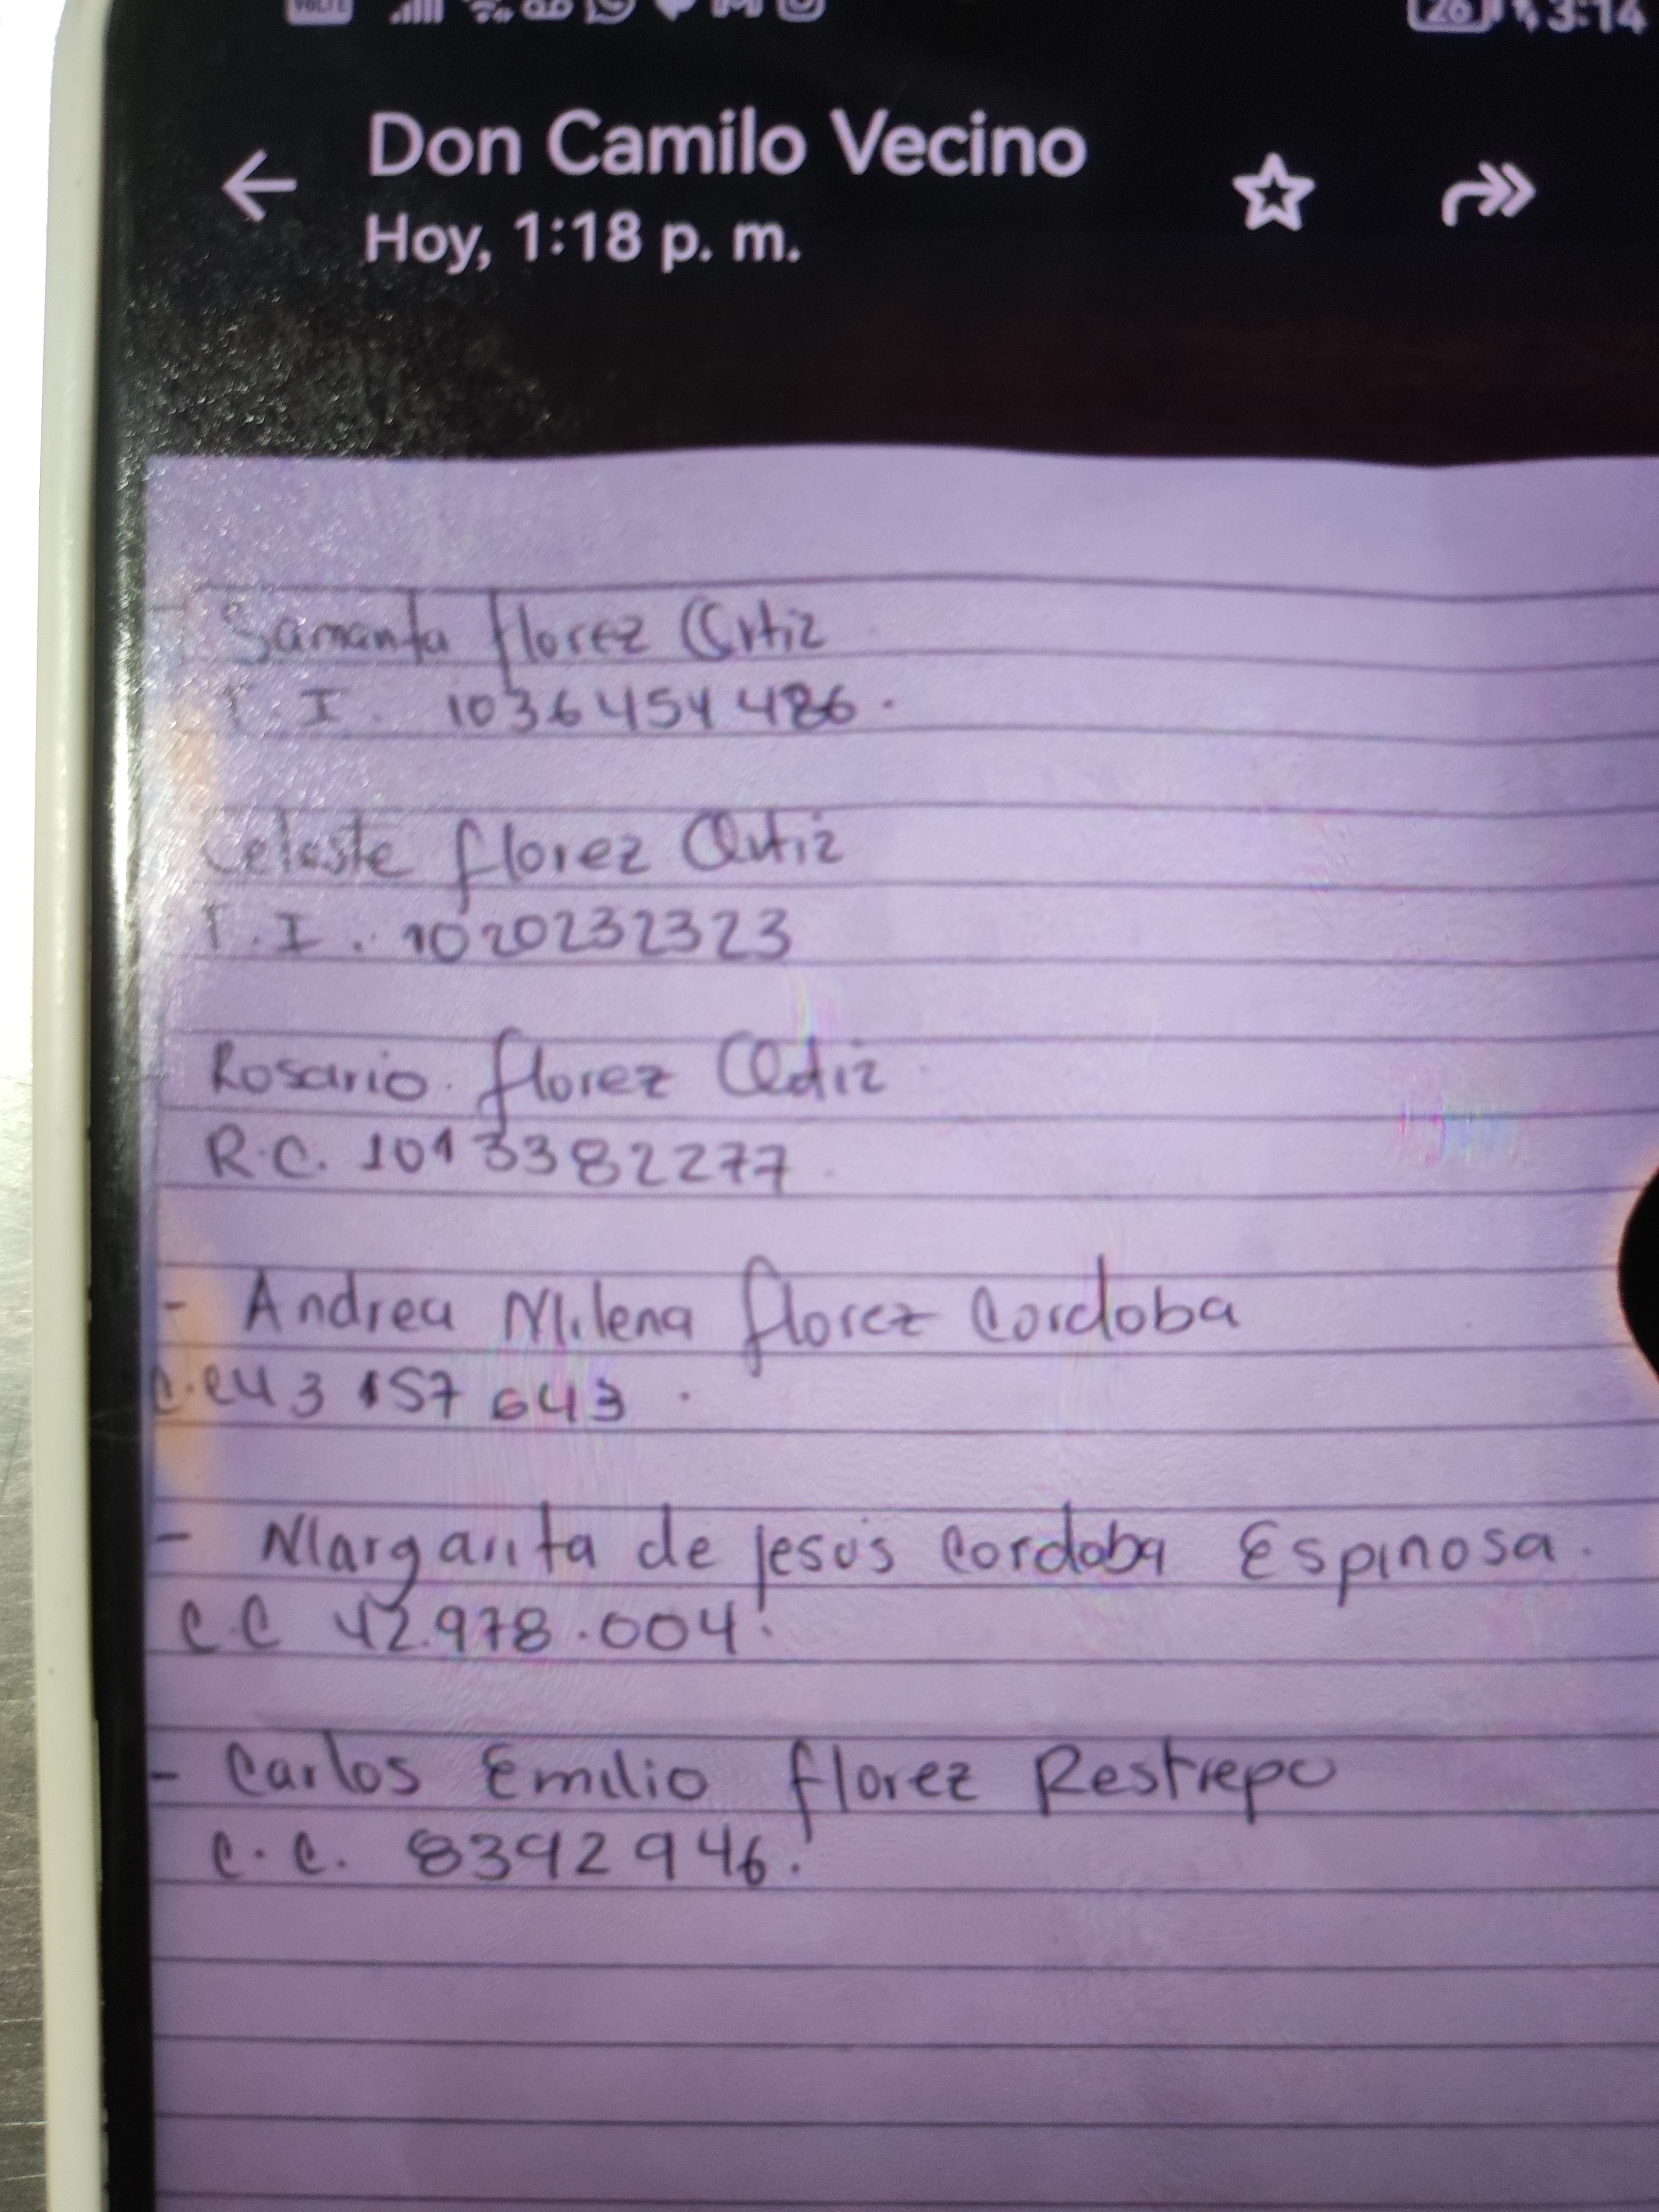 3:14
Don Camilo Vecino
Hoy, 1:18 p. m.
Samanta florez Ortiz
T. I. 1036454486.
Celeste florez Ortiz
T.I. 1020232323
Rosario. florez Ortiz
R.C. 1013382277
- Andrea Milena florez Cordoba
C.C 43 157 643.
- Margarita de jesús Cordoba Espinosa.
C.C 42.978.004.
- Carlos Emilio florez Restrepo
C.C. 8392946.